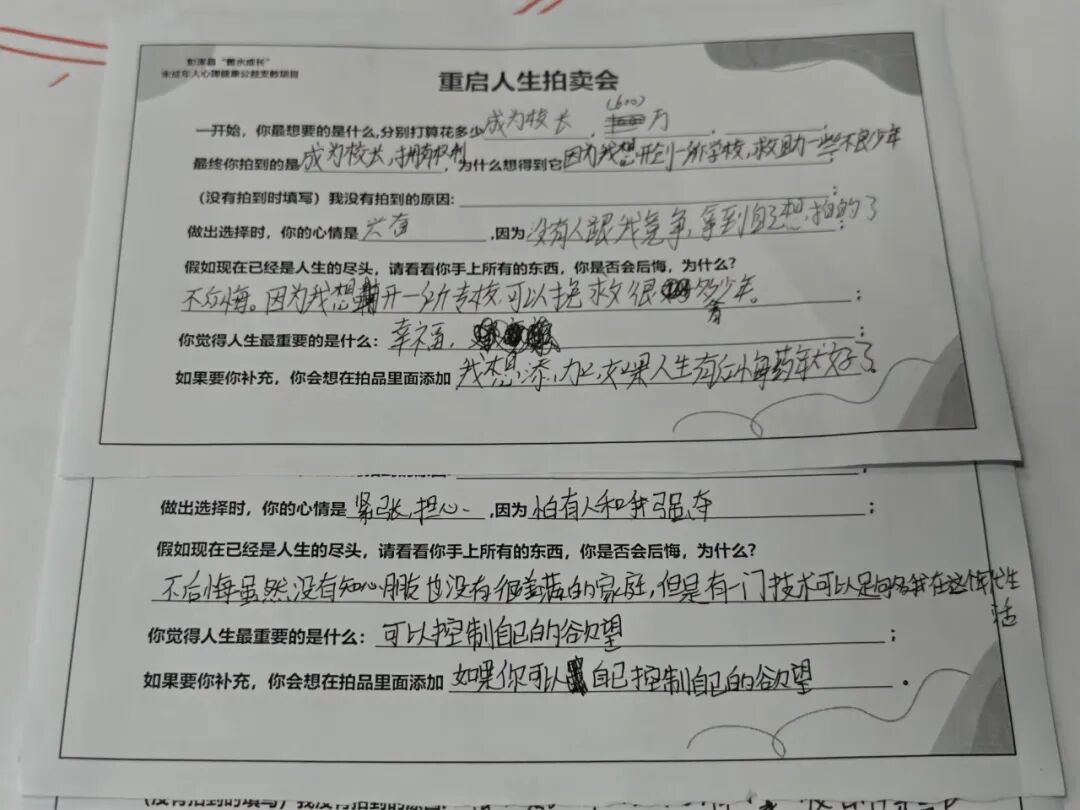 彭泽县“善水成长”
未成年人心理健康公益支教项目
重启人生拍卖会
一开始，你最想要的是什么,分别打算花多少成为校长，(600)万，；
最终你拍到的是成为校长，拥有权利，为什么想得到它因为我想开创一所学校，救助一些不良少年
（没有拍到时填写）我没有拍到的原因：；
做出选择时，你的心情是兴奋,因为没有人跟我竞争，拿到自己想拍的了；
假如现在已经是人生的尽头，请看看你手上所有的东西，你是否会后悔，为什么？
不后悔。因为我想开一所专校，可以挽救很多青少年。；
你觉得人生最重要的是什么：幸福，；
如果要你补充，你会想在拍品里面添加我想添加，如果人生有后悔药就好了。
做出选择时，你的心情是紧张，担心,因为怕有人和我强夺；
假如现在已经是人生的尽头，请看看你手上所有的东西，你是否会后悔，为什么？
不后悔虽然没有知心朋友也没有很美满的家庭，但是有一门技术可以足够我在这个年代生活
你觉得人生最重要的是什么：可以控制自己的欲望；
如果要你补充，你会想在拍品里面添加如果你可以自己控制自己的欲望。
（没有拍到时填写）我没有拍到的原因：